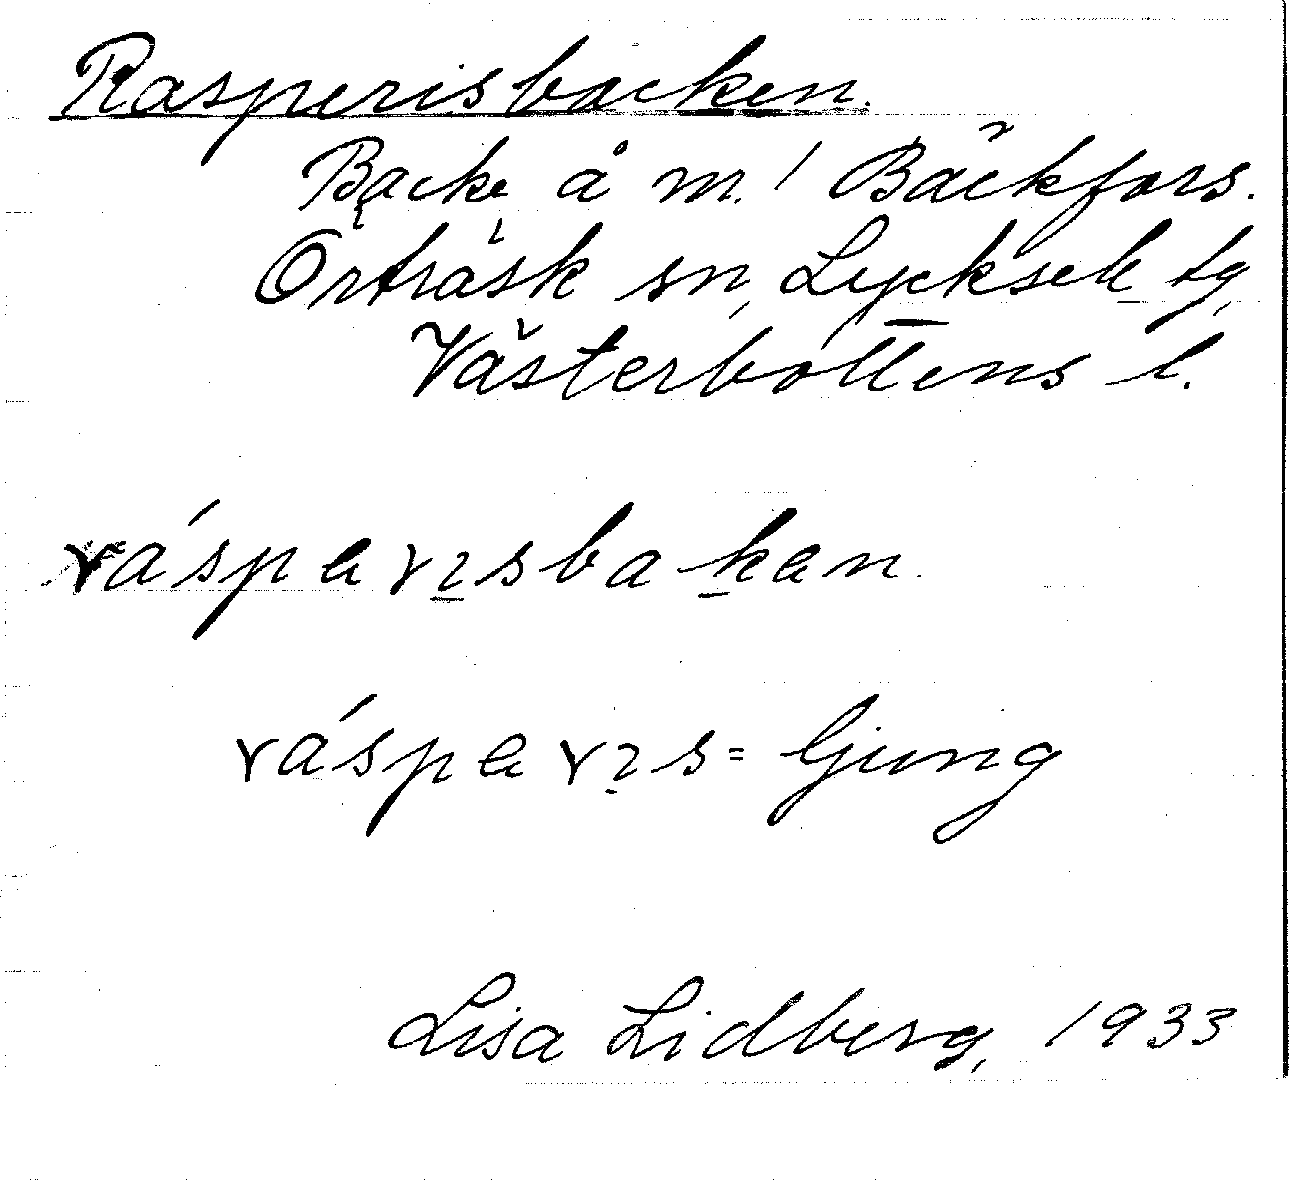 Rasperisbacken.
Backe å m. / Bäckfors.
Örträsk sn, Lycksele tg,
Västerbottens l.
ráspərısbakən.
ráspərıs = ljung
Lisa Lidberg, 1933